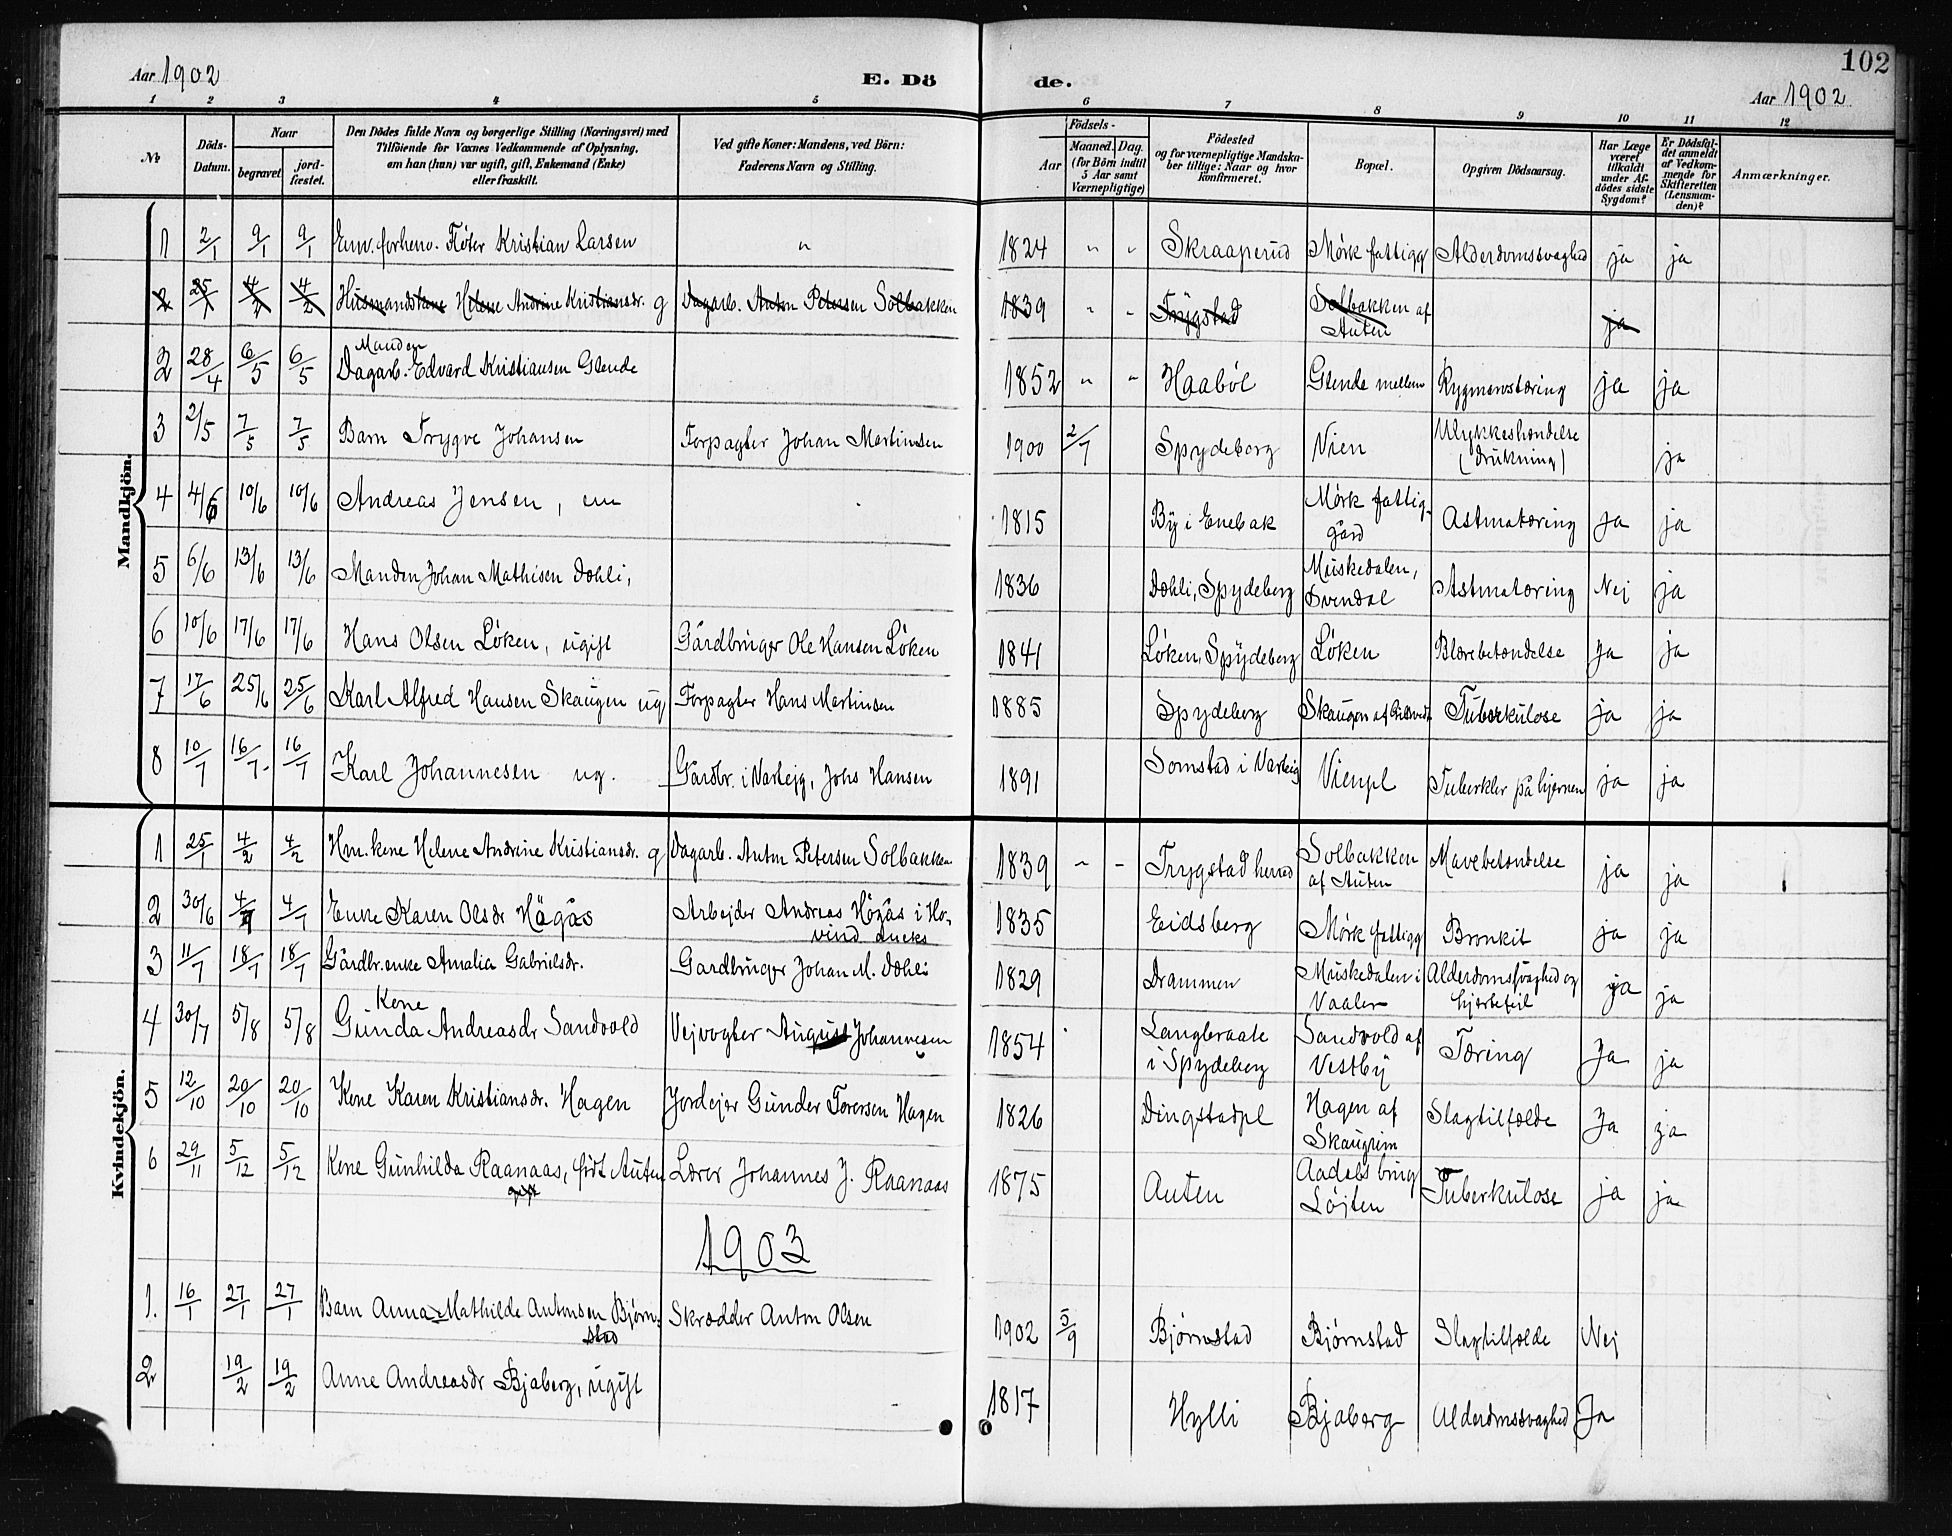 102
Aar 1902
E. Dö de.
Aar 1902
1 2 3 4 5 6 7 8 9 10 11 12
№
Döds-Datum.
Naar
begravet
jord-fæstet.
Den Dödes fulde Navn og borgerlige Stilling (Næringsvei) med
Tilföiende for Voxnes Vedkommende af Oplysning,
om han (hun) var ugift, gift, Enkemand (Enke)
eller fraskilt.
Ved gifte Koner: Mandens, ved Börn:
Faderens Navn og Stilling.
Födsels-
Aar
Maaned. Dag.
(for Börn indtil
5 Aar samt
Værnepligtige)
Födested
og for værnepligtige Mandska-
ber tillige: Naar og hvor
konfirmeret.
Bopæl.
Opgiven Dödsaarsag.
Har Læge
været
tilkaldt
under Af-
dödes sidste
Sygdom?
Er Dödsfal-
det anmeldt
af Vedkom-
mende for
Skifteretten
(Lensman-
den)?
Anmærkninger.
Mandkjön.
1 2/1 9/1 9/1 Enm. forhenv. Fløter Kristian Larsen " 1824 " " Skraaperud Mørk fattigg Alderdomssvaghed ja ja
2 25/1 4/2 4/2 Husmandskone Helene Andrine Kristiansdr. g Dagarb. Anton Petersen Solbakken 1839 " " Trygstad Solbakken af Auten ja
2 28/4 6/5 6/5 Manden Dagarb. Edvard Kristiansen Glende 1852 " " Haabøl Glende mellem Rygmarvstæring ja ja
3 2/5 7/5 7/5 Barn Trygve Johansen Forpagter Johan Martinsen 1900 2/7 Spydeberg Vien Ulykkeshændelse (drukning) ja
4 4/6 10/6 10/6 Andreas Jensen, em 1815 By i Enebak Mørk fattig-gård Astmatæring ja ja
5 6/6 13/6 13/6 Manden Johan Mathisen Dæhli, 1836 Dæhli, Spydeberg Muskedalen, Svendal Astmatæring Nej ja
6 10/6 17/6 17/6 Hans Olsen Løken, ugift Gårdbruger Ole Hansen Løken 1841 Løken, Spydeberg Løken Blærebetændelse Ja ja
7 17/6 25/6 25/6 Karl Alfred Hansen Skaugen ug Forpagter Hans Martinsen 1885 Spydeberg Skaugen af Tuberkulose ja ja
8 10/7 16/7 16/7 Karl Johannesen ug. Gårdbr. i Varteig, Johs Hansen 1891 Somstad i Varteig Vienpl Tuberkler på hjernen ja ja
Kvindekjön.
1 25/1 4/2 4/2 Hm. kone Helene Andrine Kristiansdr. g Dagarb. Anton Petersen Solbakken 1839 " " Trygstad herred Solbakken af Auten Mavebetændelse ja ja
2 30/6 4/7 4/7 Enke Karen Olsdr Hågås Arbejder Andreas Høgås i Ho-vind 1835 Eidsberg Mørk fattigg Bronkit ja ja
3 11/7 18/7 18/7 Gårdbr.enke Amalia Gabrielsdr. Gardbruger Johan M. Dæhli 1829 Drammen Muskedalen i Vaaler Alderdomssvaghed og hjertefeil ja ja
4 30/7 5/8 5/8 Kone Gunda Andreasdr Sandvold Vejvogter August Johannesen 1854 Langbraate i Spydeberg Sandvold af Vestby Tæring Ja ja
5 12/10 20/10 20/10 Kone Karen Kristiansdr. Hagen Jordejer Gunder Torersen Hagen 1826 Dingstadpl Hagen af Skaugrim Slagtilfælde Ja ja
6 29/11 5/12 5/12 Kone Gunhilda Raanaas, født Auten gift Lærer Johannes J. Raanaas 1875 Auten Aadals brug Løjten Tuberkulose ja ja
1903
1. 16/1 27/1 27/1 Barn Anna Mathilde Antonsen Bjørn-stad Skrædder Anton Olsen 1902 5/9 Bjørnstad Bjørnstad Slagtilfælde Nej
2 19/2 19/2 Anne Andreasdr Bjaberg, ugift 1817 Hylli Bjaberg Alderdomssvaghed Ja